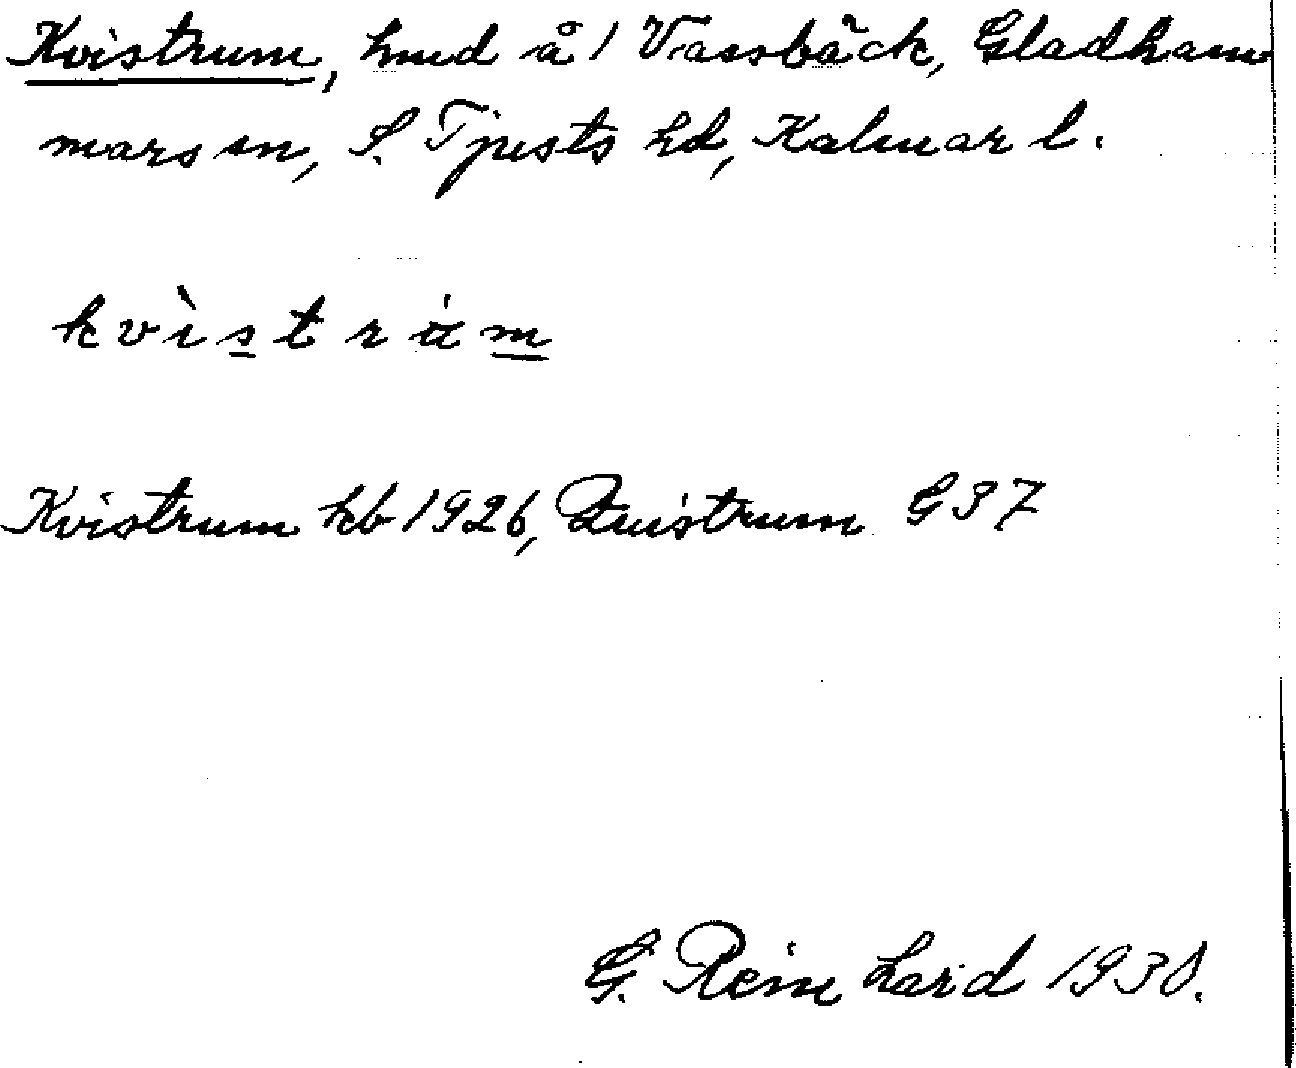 Kvistrum, hmd å 1 Vassbäck, Gladham
mars sn, S. Tjusts hd, Kalmar l.
kvìstrám
Kvistrum kb 1926, Quistrum G37
G. Reinhard 1930.